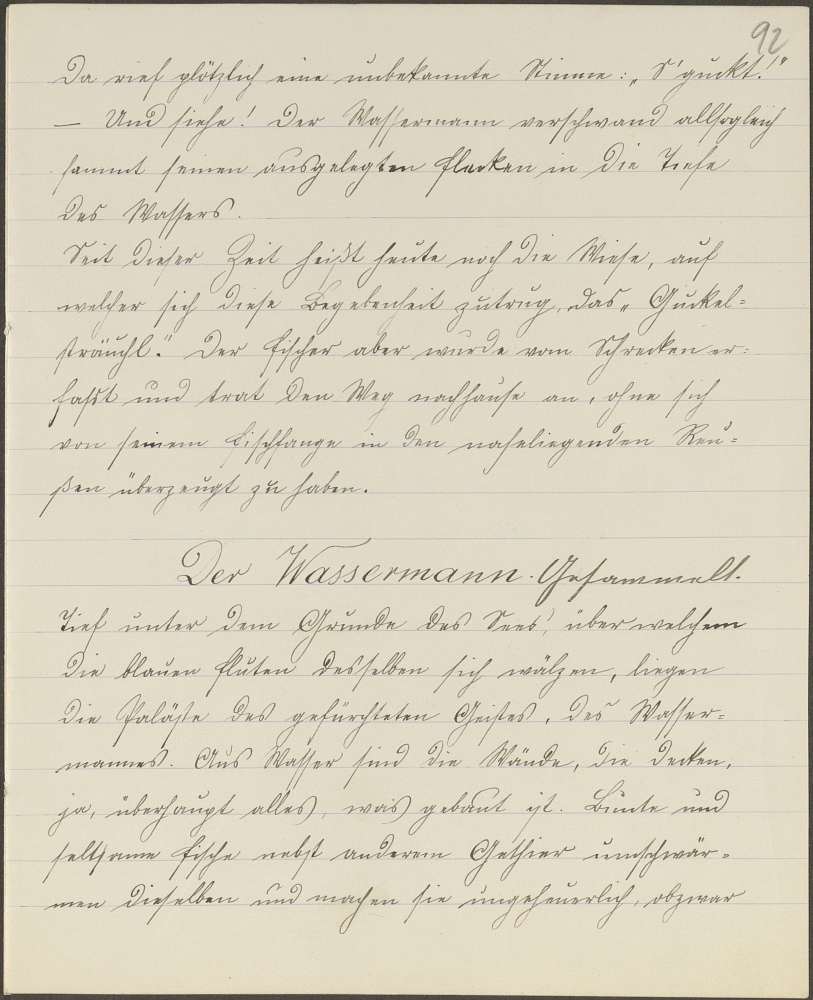 92
Da rief plötzlich eine unbekannte Stimme: „S'guckt!"
— Und siehe! Der Wassermann verschwand allsogleich
sammt seinen ausgelegten Flecken in die Tiefe
des Wassers.
Seit dieser Zeit heißt heute noch die Wiese, auf
welcher sich diese Begebenheit zutrug, das „Guckel=
sträuchl." Der Fischer aber wurde vom Schrecken er=
faßt und trat den Weg nachhause an, ohne sich
von seinem Fischfange in den naheliegenden Reu=
ßen überzeugt zu haben.
Der Wassermann. Gesammelt.
Tief unter dem Grunde des Sees, über welchem
die blauen Fluten desselben sich wälzen, liegen
die Paläste des gefürchteten Geistes, des Wasser=
mannes. Aus Wasser sind die Wände, die Decken,
ja, überhaupt alles, was gebaut ist. Bunte und
seltsame Fische nebst anderem Gethier umschwär=
men dieselben und machen sie ungeheuerlich, obzwar